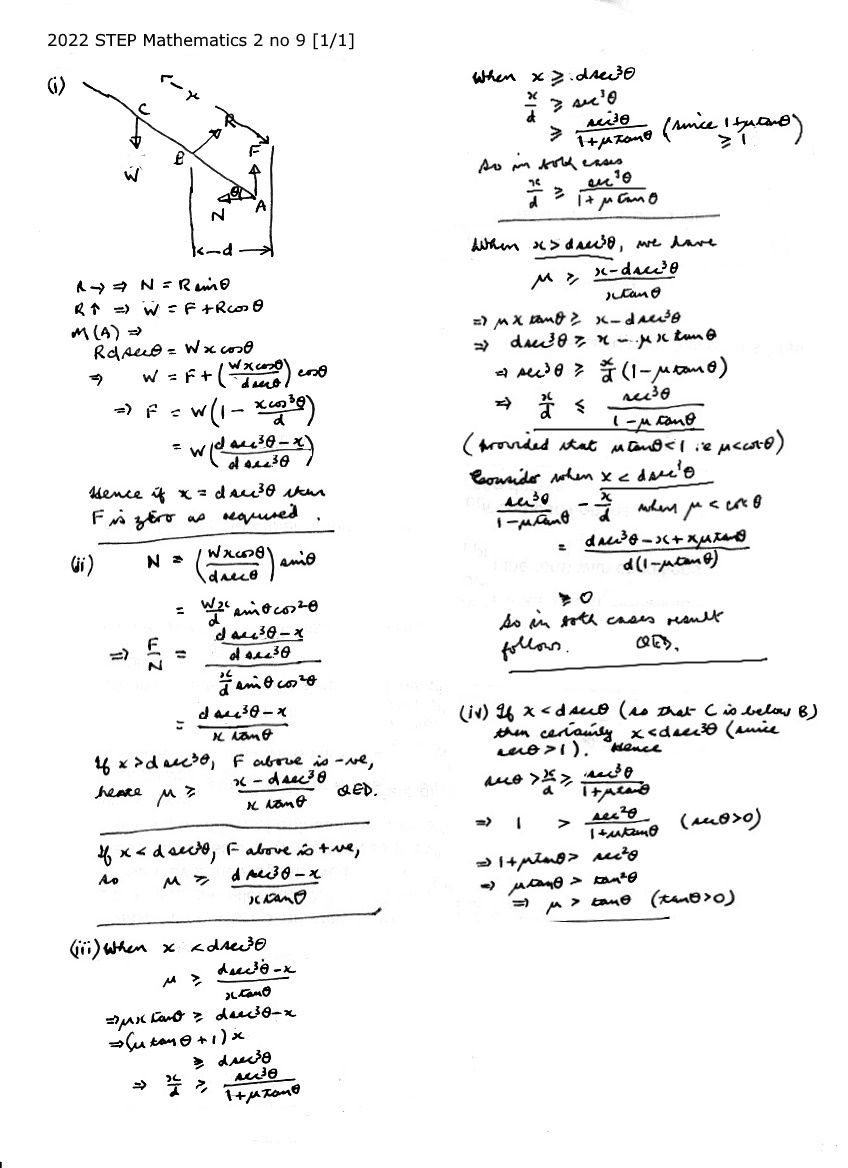 2022 STEP Mathematics 2 no 9 [1/1]
(i)
x
C
R
B
F
W
θ
N
A
d
R → ⇒ N = R sinθ
R↑ ⇒ W = F + R cosθ
M(A) ⇒
R d secθ = W x cosθ
⇒ W = F + (W x cosθ / d secθ) cosθ
⇒ F = W(1 - x cos³θ / d)
= W(d sec³θ - x / d sec³θ)
Hence if x = d sec³θ then
F is zero as required.
(ii) N = (W x cosθ / d secθ) sinθ
= Wx/d sinθ cos²θ
⇒ F/N = (d sec³θ - x / d sec³θ) / (x/d sinθ cos²θ)
= d sec³θ - x / x tanθ
If x > d sec³θ, F above is -ve,
hence μ ≥ x - d sec³θ / x tanθ QED.
If x < d sec³θ, F above is +ve,
so μ ≥ d sec³θ - x / x tanθ
(iii) When x < d sec³θ
μ ≥ d sec³θ - x / x tanθ
⇒ μx tanθ ≥ d sec³θ - x
⇒ (μ tanθ + 1) x
≥ d sec³θ
⇒ x/d ≥ sec³θ / 1 + μ tanθ
When x ≥ d sec³θ
x/d ≥ sec³θ
≥ sec³θ / 1 + μ tanθ (since 1 + μ tanθ ≥ 1)
So in both cases
x/d ≥ sec³θ / 1 + μ tanθ
When x > d sec³θ, we have
μ ≥ x - d sec³θ / x tanθ
⇒ μ x tanθ ≥ x - d sec³θ
⇒ d sec³θ ≥ x - μ x tanθ
⇒ sec³θ ≥ x/d (1 - μ tanθ)
⇒ x/d ≤ sec³θ / 1 - μ tanθ
(provided that μ tanθ < 1 i.e μ < cotθ)
Consider when x < d sec³θ
sec³θ / 1 - μ tanθ - x/d when μ < cotθ
= d sec³θ - x + xμ tanθ / d(1 - μ tanθ)
≥ 0
So in both cases result
follows. QED.
(iv) If x < d secθ (so that C is below B)
then certainly x < d sec³θ (since
secθ > 1). Hence
secθ > x/d ≥ sec³θ / 1 + μ tanθ
⇒ 1 > sec²θ / 1 + μ tanθ (secθ > 0)
⇒ 1 + μ tanθ > sec²θ
⇒ μ tanθ > tan²θ
⇒ μ > tanθ (tanθ > 0)